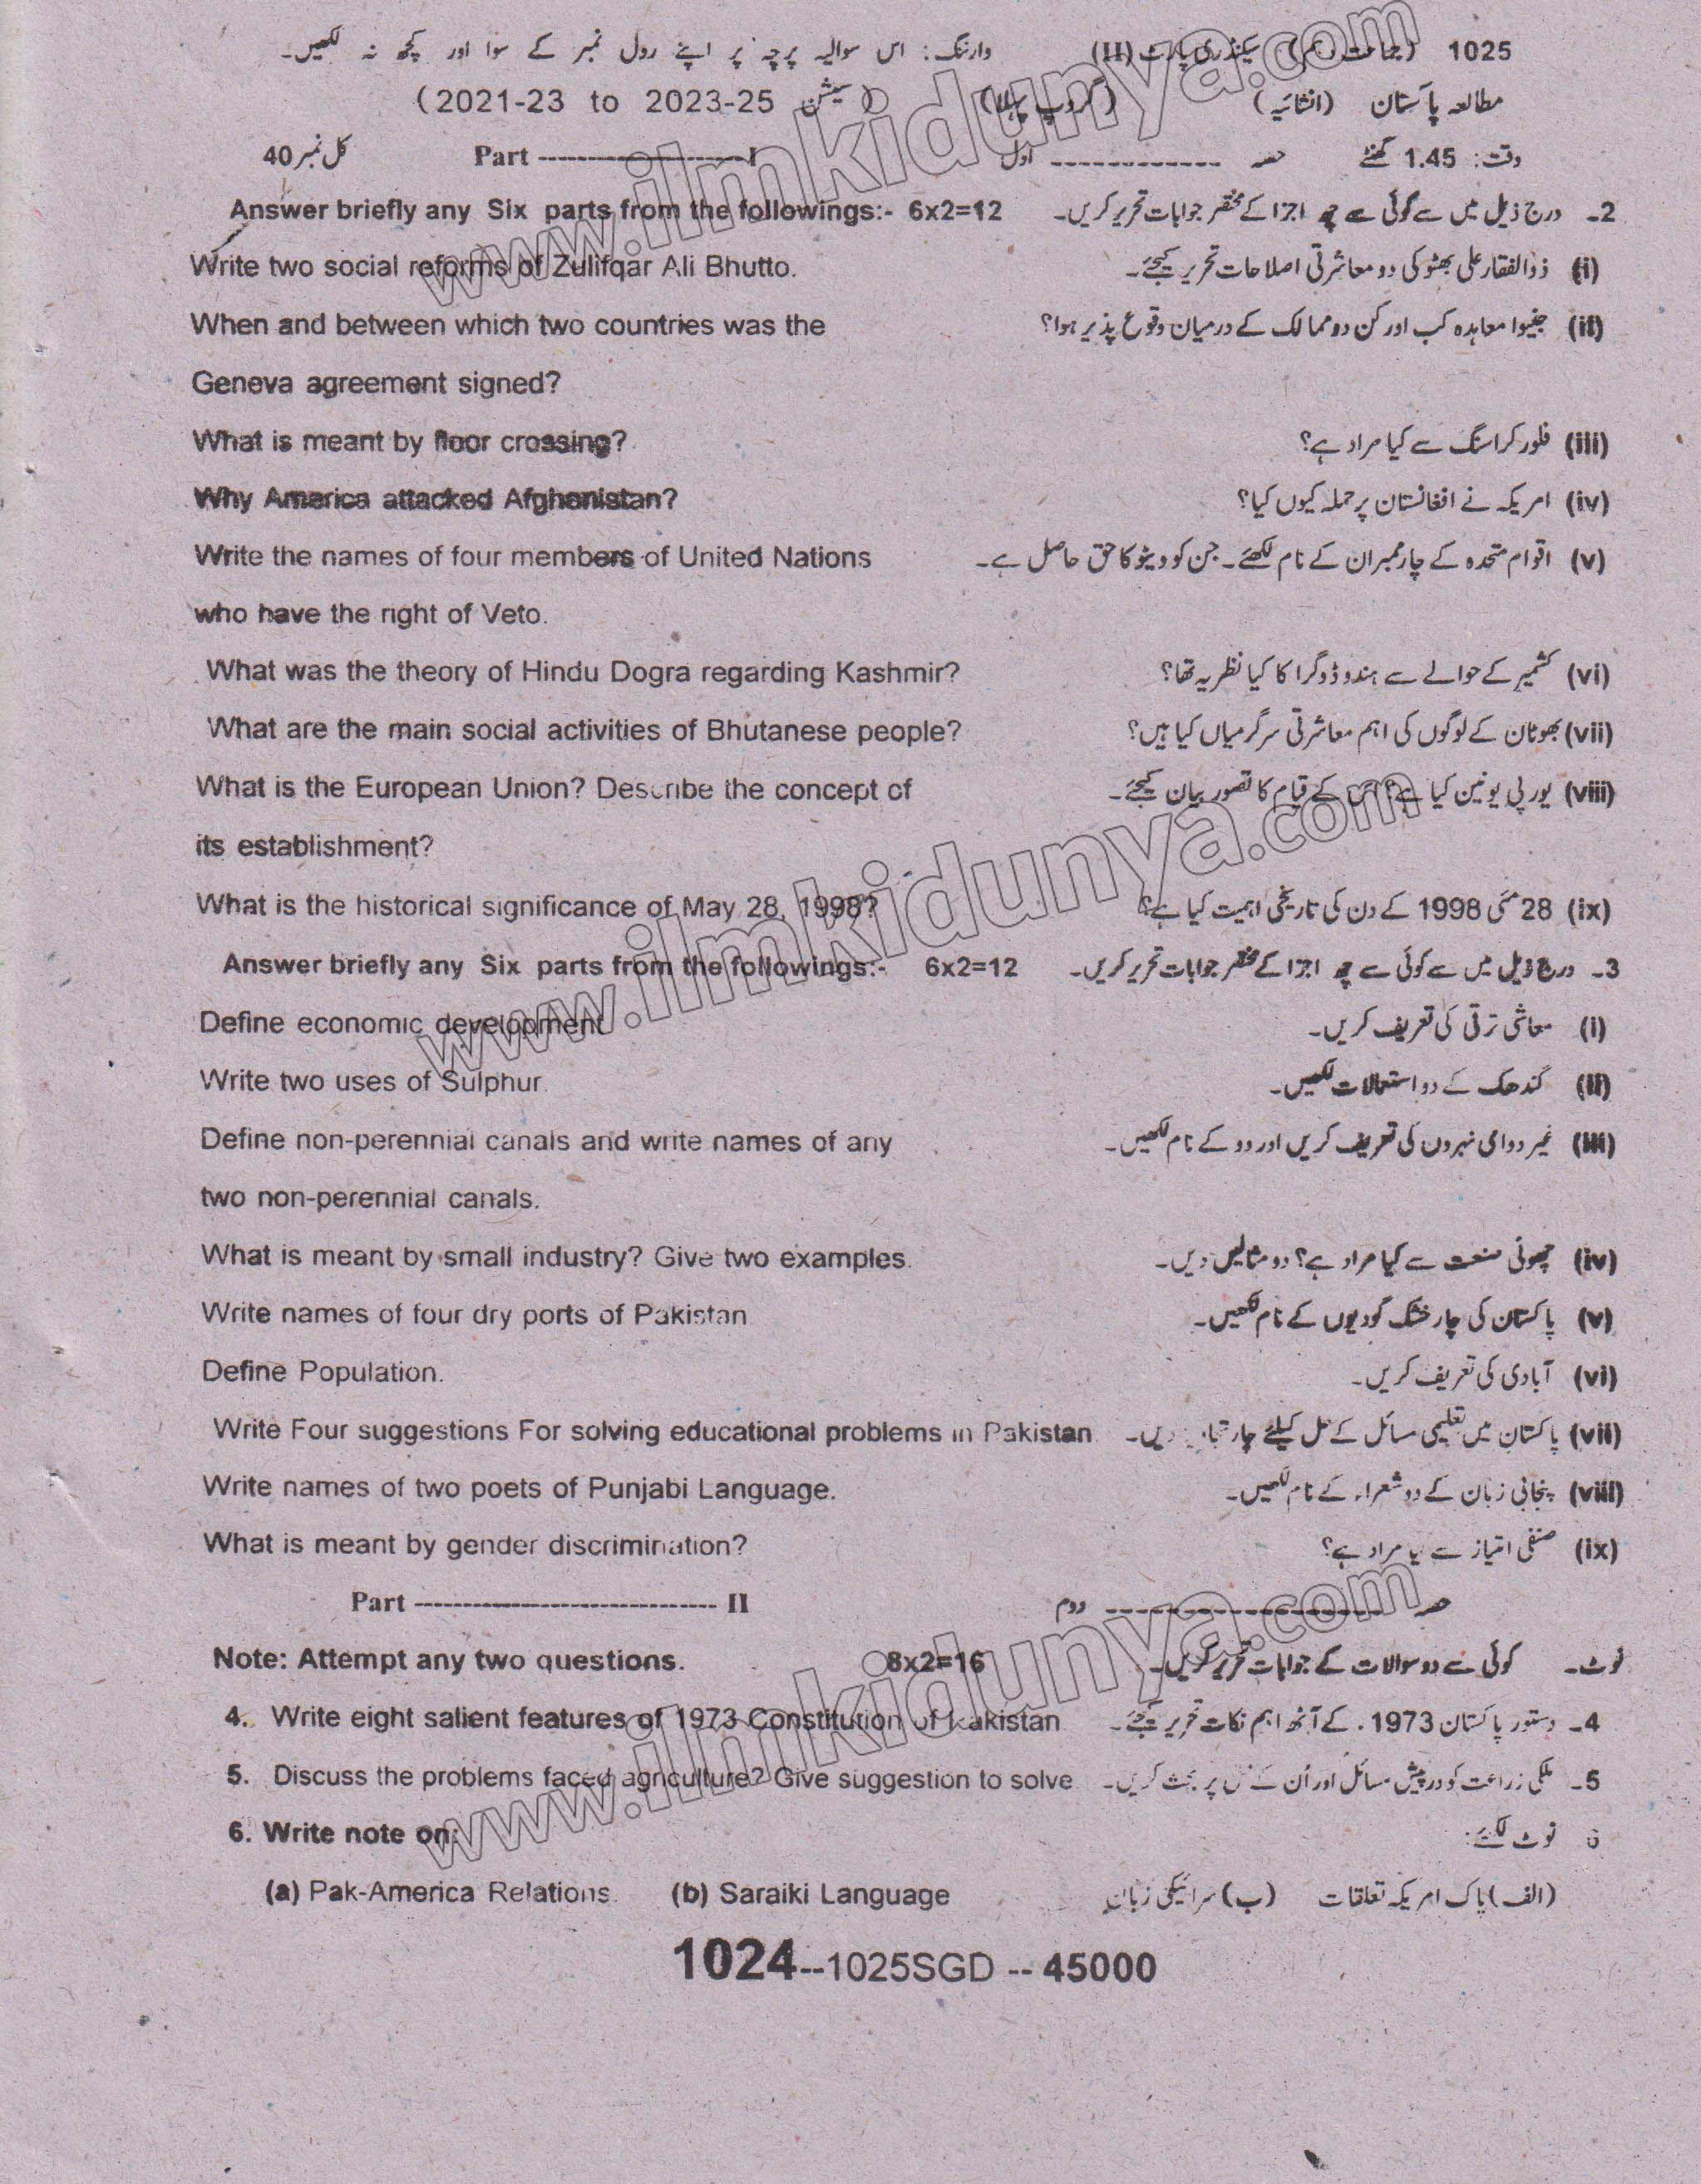 1025 (جماعت دہم) سیکنڈری پارٹ (II) وارننگ: اس سوالیہ پرچہ پر اپنے رول نمبر کے سوا اور کچھ نہ لکھیں۔
مطالعہ پاکستان (انشائیہ) (گروپ پہلا) (سیشن 2021-23 to 2023-25)
وقت: 1.45 گھنٹے حصہ ------------- اول Part --------------------- I کل نمبر 40
Answer briefly any Six parts from the followings:- 6x2=12 2۔ درج ذیل میں سے کوئی سے چھ اجزا کے مختصر جوابات تحریر کریں۔
Write two social reforms of Zulifqar Ali Bhutto. (i) ذوالفقار علی بھٹو کی دو معاشرتی اصلاحات تحریر کیجئے۔
When and between which two countries was the (ii) جنیوا معاہدہ کب اور کن دو ممالک کے درمیان وقوع پذیر ہوا؟
Geneva agreement signed?
What is meant by floor crossing? (iii) فلور کراسنگ سے کیا مراد ہے؟
Why America attacked Afghanistan? (iv) امریکہ نے افغانستان پر حملہ کیوں کیا؟
Write the names of four members of United Nations (v) اقوام متحدہ کے چار ممبران کے نام لکھئے۔ جن کو ویٹو کا حق حاصل ہے۔
who have the right of Veto.
What was the theory of Hindu Dogra regarding Kashmir? (vi) کشمیر کے حوالے سے ہندو ڈوگرا کا کیا نظریہ تھا؟
What are the main social activities of Bhutanese people? (vii) بھوٹان کے لوگوں کی اہم معاشرتی سرگرمیاں کیا ہیں؟
What is the European Union? Describe the concept of (viii) یورپی یونین کیا ہے؟ اس کے قیام کا تصور بیان کیجئے۔
its establishment?
What is the historical significance of May 28, 1998? (ix) 28 مئی 1998 کے دن کی تاریخی اہمیت کیا ہے؟
Answer briefly any Six parts from the followings:- 6x2=12 3۔ درج ذیل میں سے کوئی سے چھ اجزا کے مختصر جوابات تحریر کریں۔
Define economic development (i) معاشی ترقی کی تعریف کریں۔
Write two uses of Sulphur. (ii) گندھک کے دو استعمالات لکھیں۔
Define non-perennial canals and write names of any (iii) غیر دوامی نہروں کی تعریف کریں اور دو کے نام لکھیں۔
two non-perennial canals.
What is meant by small industry? Give two examples. (iv) چھوٹی صنعت سے کیا مراد ہے؟ دو مثالیں دیں۔
Write names of four dry ports of Pakistan (v) پاکستان کی چار خشک گودیوں کے نام لکھیں۔
Define Population. (vi) آبادی کی تعریف کریں۔
Write Four suggestions For solving educational problems in Pakistan (vii) پاکستان میں تعلیمی مسائل کے حل کیلئے چار دیں۔
Write names of two poets of Punjabi Language. (viii) پنجابی زبان کے دو شعراء کے نام لکھیں۔
What is meant by gender discrimination? (ix) صنفی امتیاز سے کیا مراد ہے؟
Part ------------------------------- II حصہ -------------------- دوم
Note: Attempt any two questions. 8x2=16 نوٹ۔ کوئی سے دو سوالات کے جوابات تحریر کریں۔
4. Write eight salient features of 1973 Constitution of Pakistan 4۔ دستور پاکستان 1973ء کے آٹھ اہم نکات تحریر کیجئے۔
5. Discuss the problems faced agriculture? Give suggestion to solve 5۔ ملکی زراعت کو درپیش مسائل اور اُن کے حل پر بحث کریں۔
6. Write note on: 6 نوٹ لکھئے:
(a) Pak-America Relations. (b) Saraiki Language (الف) پاک امریکہ تعلقات (ب) سرائیکی زبان
1024--1025SGD -- 45000
www.ilmkidunya.com
www.ilmkidunya.com
www.ilmkidunya.com